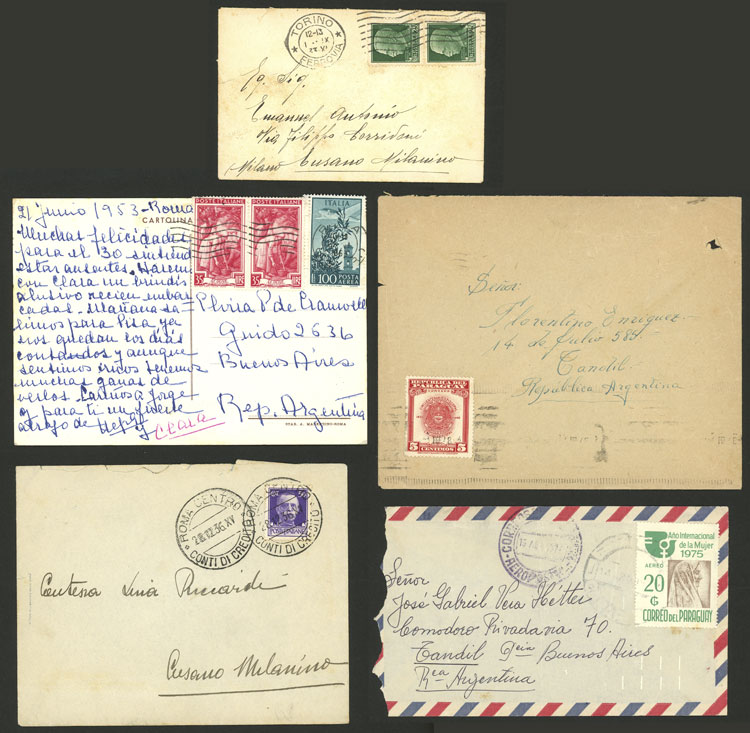 TORINO
12-13
FERROVIA
Ep. Sig.
Emanuel Antonio
Via Filippo Corridoni
Milano Cusano Milanino
21 junio 1953 - Roma
CARTOLINA
POSTE ITALIANE
POSTE ITALIANE
ITALIA
35 LIRE
35 LIRE
L. 100 POSTA AEREA
Muchas felicidades
para el 30 sintiendo
estar ausentes. Haremos
con Clara un brindis
alusivo recien embar
cadas. Mañana sa=
limos para Pisa ya
nos quedan los días
contados y aunque
sentimos irnos tenemos
muchas ganas de
verlos. Cariños a Jorge
y para ti un fuerte
abrazo de
Clara
P. de
Guido 2636
Buenos Aires
Rep. Argentina
Señor
Florentino Enriquez
14 de Julio 585
Tandil.
Republica Argentina
REPUBLICA DEL
PARAGUAY
5 CENTIMOS 5
ROMA CENTRO
28.12.36.XV
CONTI DI CREDITO
ROMA CENTRO
CONTI DI CREDITO
Contessa Lina Riccardi
Cusano Milanino
CORREOS
Año Internacional
de la Mujer
1975
AEREO
20
₲
CORREO DEL PARAGUAY
Señor
José Gabriel Vera Hetter
Comodoro Rivadavia 70.
Tandil Pcia Buenos Aires
Rca Argentina